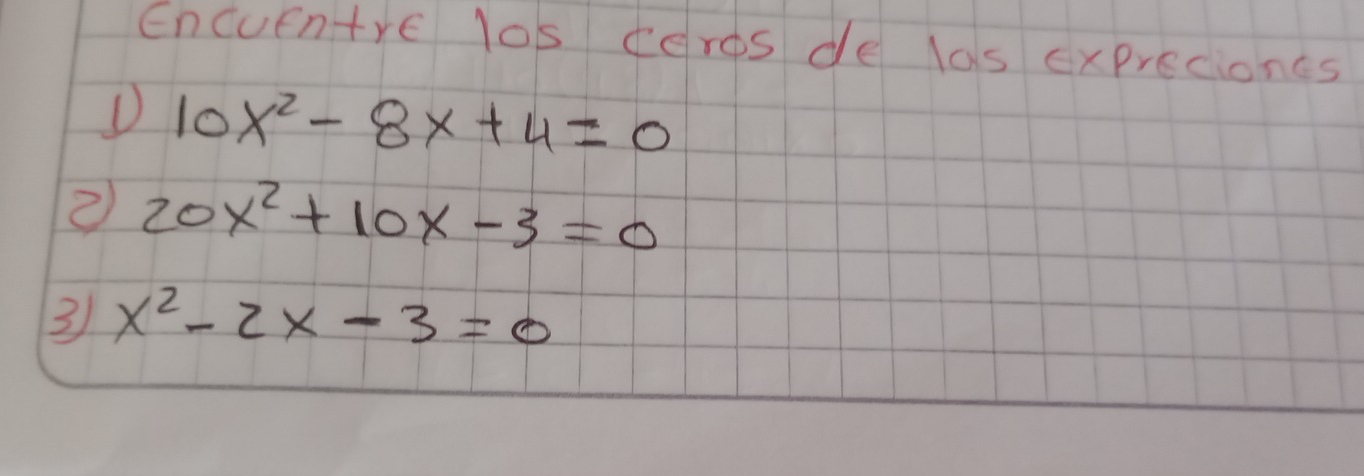 Encuentre los ceros de las expreciones
1) 10x² - 8x + 4 = 0
2) 20x² + 10x - 3 = 0
3) x² - 2x - 3 = 0